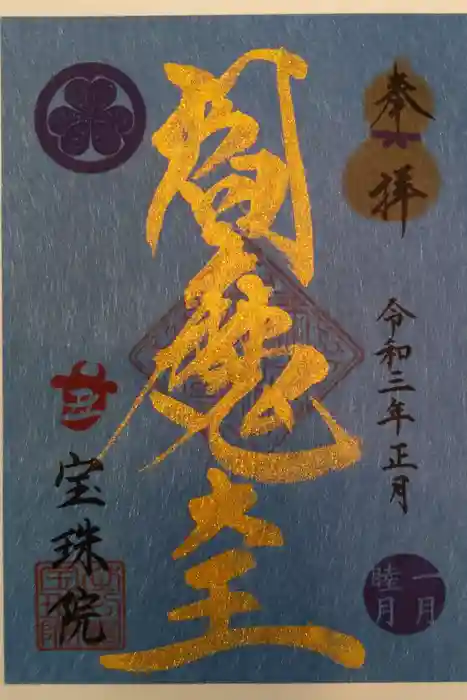 奉拝
令和三年正月
一月
睦月
閻魔大王
丑
宝珠院